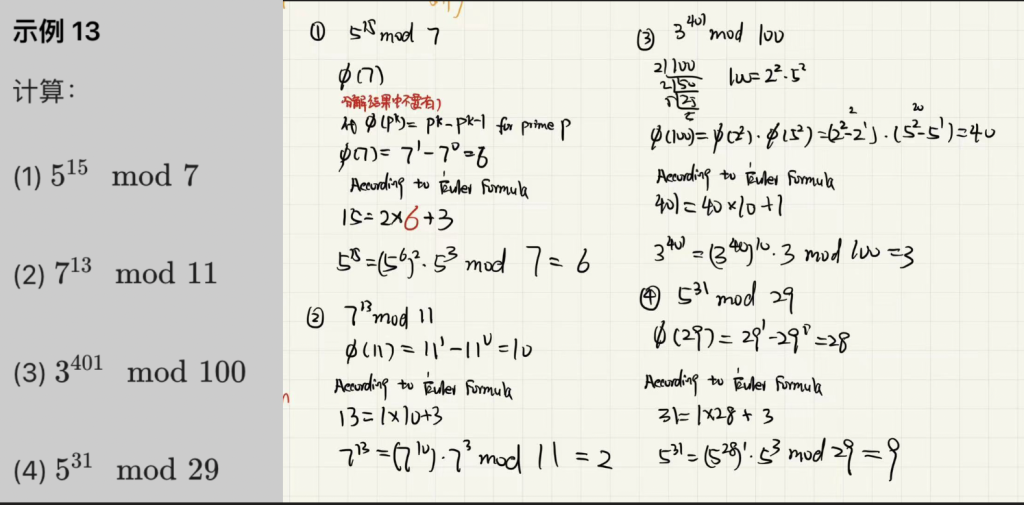 示例 13
计算：
(1) 5^15 mod 7
(2) 7^13 mod 11
(3) 3^401 mod 100
(4) 5^31 mod 29
① 5^15 mod 7
φ(7)
分解结果中不重复有)
φ(p^k) = p^k - p^k-1 for prime p
φ(7) = 7^1 - 7^0 = 6
According to Euler Formula
15 = 2×6+3
5^15 = (5^6)^2 · 5^3 mod 7 = 6
② 7^13 mod 11
φ(11) = 11^1 - 11^0 = 10
According to Euler Formula
13 = 1×10+3
7^13 = (7^10) · 7^3 mod 11 = 2
③ 3^401 mod 100
2|100
2|50
5|25
5
100 = 2^2 · 5^2
2 20
φ(100) = φ(2^2) · φ(5^2) = (2^2-2^1) · (5^2-5^1) = 40
According to Euler Formula
401 = 40×10+1
3^401 = (3^40)^10 · 3 mod 100 = 3
④ 5^31 mod 29
φ(29) = 29^1 - 29^0 = 28
According to Euler Formula
31 = 1×28 + 3
5^31 = (5^28)^1 · 5^3 mod 29 = 9